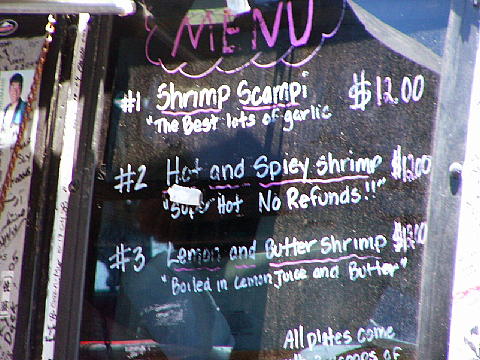 MENU
#1 Shrimp Scampi $12.00
"The Best lots of garlic
#2 Hot and Spicy shrimp $12.00
"Super Hot No Refunds!!"
#3 Lemon and Butter shrimp
"Boiled in Lemon Juice and Butter"
All plates come
scoops of